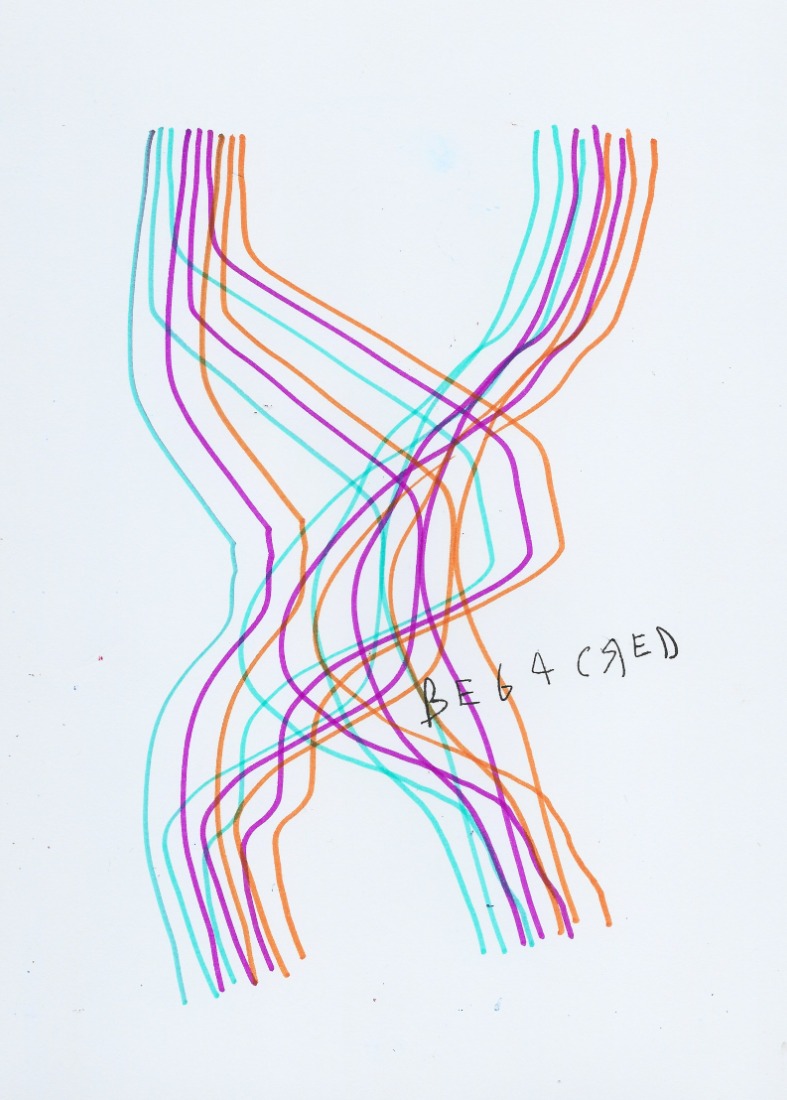 BE64 CЯED